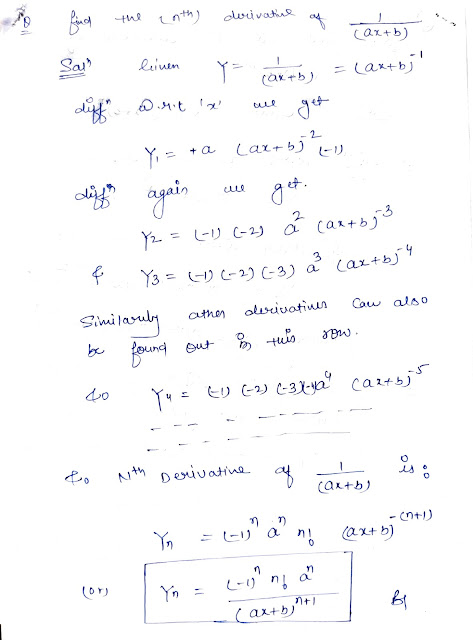 ① find the (nth) derivative of 1/(ax+b)
Solⁿ Given Y = 1/(ax+b) = (ax+b)⁻¹
diffⁿ w.r.t 'x' we get
Y₁ = +a (ax+b)⁻² (-1)
diffⁿ again we get.
Y₂ = (-1) (-2) a² (ax+b)⁻³
& Y₃ = (-1) (-2) (-3) a³ (ax+b)⁻⁴
Similaruly other derivatives can also
be found out in this row.
So Y₄ = (-1) (-2) (-3)(-4)a⁴ (ax+b)⁻⁵
So Nth Derivative of 1/(ax+b) is :
Yₙ = (-1)ⁿ aⁿ n! (ax+b)⁻⁽ⁿ⁺¹⁾
(or) Yₙ = (-1)ⁿ n! aⁿ / (ax+b)ⁿ⁺¹